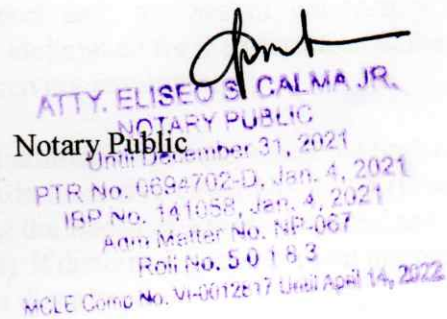 ATTY. ELISEO S. CALMA JR.
NOTARY PUBLIC
Notary Public
Until December 31, 2021
PTR No. 0694702-D, Jan. 4, 2021
IBP No. 141058, Jan. 4, 2021
Adm Matter No. NP-067
Roll No. 50183
MCLE Comp No. Until April 14, 2022